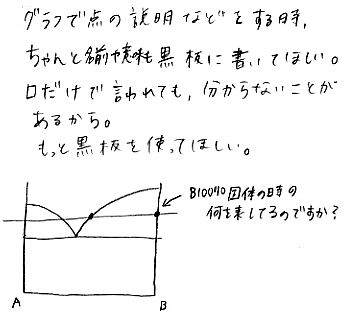 グラフで点の説明などをする時,
ちゃんと名前や意味も黒板に書いてほしい。
口だけで言われても,分からないことが
あるから。
もっと黒板を使ってほしい。
B100%固体の時の
何を表してるのですか?
A
B